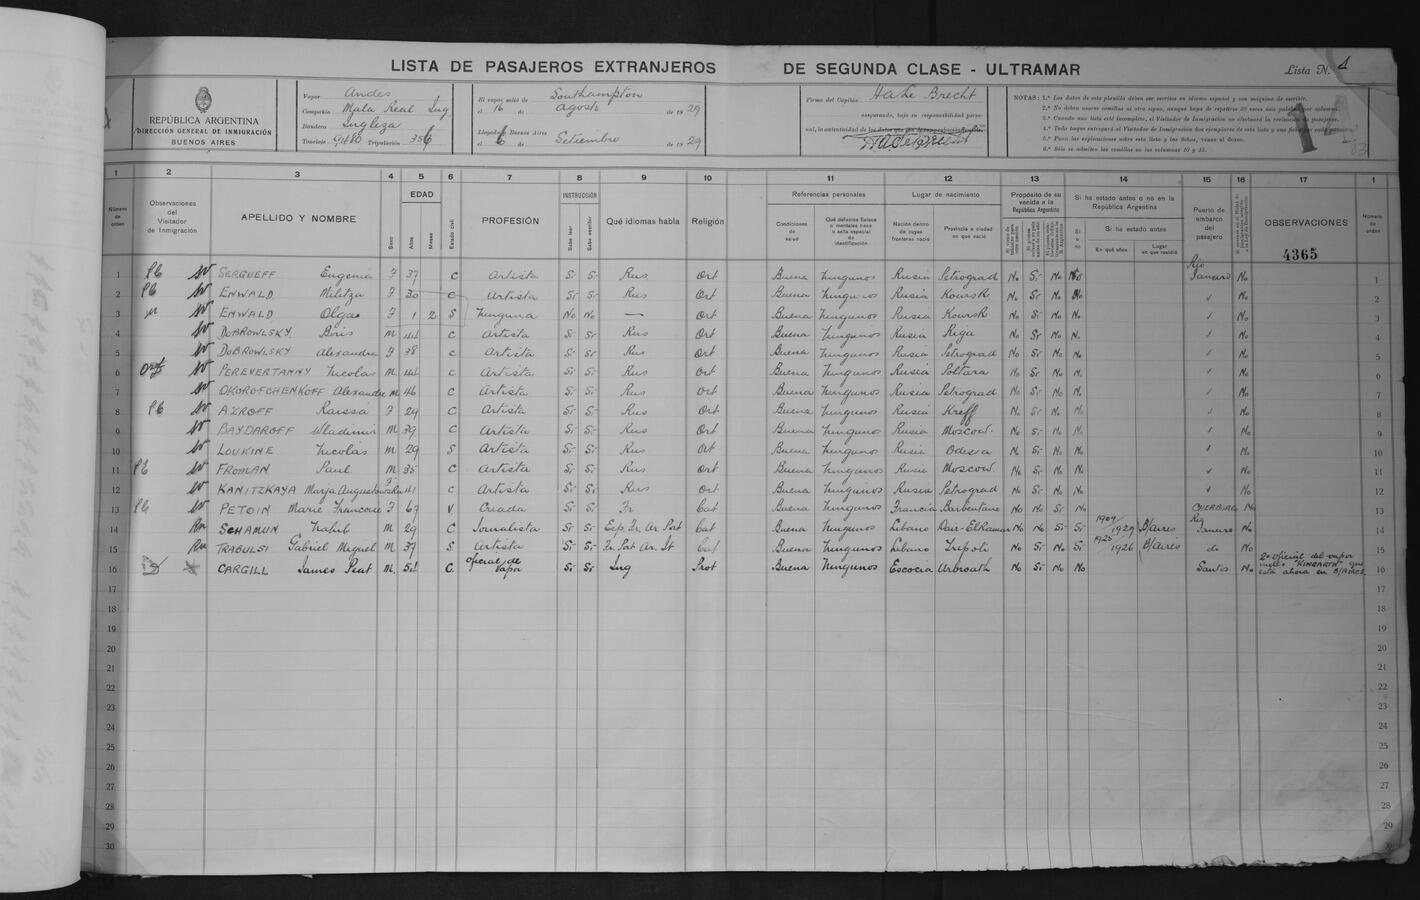 LISTA DE PASAJEROS EXTRANJEROS DE SEGUNDA CLASE - ULTRAMAR
Lista N. 1
REPÚBLICA ARGENTINA
DIRECCIÓN GENERAL DE INMIGRACIÓN
BUENOS AIRES
Vapor Andes
Compañía Mala Real Ing
Bandera Ingleza
Tonelaje 9480 Tripulación 356
El vapor salió de Southampton
el 16 de agosto de 1929
Llegado á Buenos Aires
el 6 de Setiembre de 1929
Firma del Capitán
asegurando, bajo su responsabilidad perso-
nal, la autenticidad de los datos que
NOTAS: 1.ª Los datos de esta planilla deben ser escritos en idioma español y con maquina de escribir.
4365
1 2 3 4 5 6 7 8 9 10 11 12 13 14 15 16 17 1
Número de orden
Observaciones del Visitador de Inmigración
APELLIDO Y NOMBRE
Sexo
EDAD
Años
Meses
Estado civil
PROFESIÓN
INSTRUCCIÓN
Sabe leer
Sabe escribir
Qué idiomas habla
Religión
Referencias personales
Condiciones de salud
Qué defectos físicos o mentales tiene o seña especial de identificación
Lugar de nacimiento
Nación dentro de cuyas fronteras nació
Provincia o ciudad en que nació
Propósito de su venida a la República Argentina
Si ha estado antes o no en la República Argentina
Si o no
Si ha estado antes
En qué años
Lugar en que residió
Puerto de embarco del pasajero
OBSERVACIONES
Número de orden
1 SERGUEFF Eugenia F 37 C Artista Si Si Rus Ort Buena Ningunos Rusia Petrograd No Si No No Rio Janeiro No 1
2 ENWALD Militza F 30 C Artista Si Si Rus Ort Buena Ningunos Rusia Koursk No Si No No " No 2
3 ENWALD Olga F 1 2 S Ninguna No No — Ort Buena Ningunos Rusia Koursk No Si No N. " No 3
4 DOBROWLSKY Boris M 44 C Artista Si Si Rus Ort Buena Ningunos Rusia Riga No Si No N. " No 4
5 DOBROWLSKY Alexandra F 38 C Artista Si Si Rus Ort Buena Ningunos Rusia Petrograd No Si No N. " No 5
6 PEREVERTANNY Nicolas M 44 C Artista Si Si Rus Ort Buena Ningunos Rusia Poltara No Si No N. " No 6
7 OKOROFCHENKOFF Alexandre M 46 C Artista Si Si Rus Ort Buena Ningunos Rusia Petrograd No Si No N. " No 7
8 AZROFF Raissa F 29 C Artista Si Si Rus Ort Buena Ningunos Rusia Kreff No Si No N. " No 8
9 BAYDAROFF Wladimir M 39 C Artista Si Si Rus Ort Buena Ningunos Rusia Moscow. No Si No N. " No 9
10 LOUKINE Nicolas M 29 S Artista Si Si Rus Ort Buena Ningunos Rusia Odesia N. Si No N. " No 10
11 FROMAN Paul M 35 C Artista Si Si Rus Ort Buena Ningunos Rusia Moscow No Si No No " No 11
12 KANITZKAYA Marja Augustowska F 41 C Artista Si Si Rus Ort Buena Ningunos Rusia Petrograd No Si No No " No 12
13 PETOIN Marie Francoise F 67 V Criada Si Si Fr Cat Buena Ningunos Francia Barbentane No No Si No CHERBURG No 13
14 SCHAMUN Nahil M 29 C Jornalista Si Si Esp. Fr. Ar. Port Cat Buena Ningunos Libano Daur-ElKamar No No Si Si 1909 1929 B/Aires Rio Janeiro No 14
15 TRABULSI Gabriel Miguel M 37 S Artista Si Si Fr. Port Ar. It Cat Buena Ningunos Libano Tripoli No Si No Si 1925 1926 B/Aires do No 15
16 CARGILL James Peat M. 51 C. oficial de vapor Si Si Ing Prot Buena Ningunos Escocia Arbroath No Si No No Santos No 2º oficial del vapor ingles "KINGARTH" que está ahora en B/AIRES 16
17 17
18 18
19 19
20 20
21 21
22 22
23 23
24 24
25 25
26 26
27 27
28 28
29 29
30 30